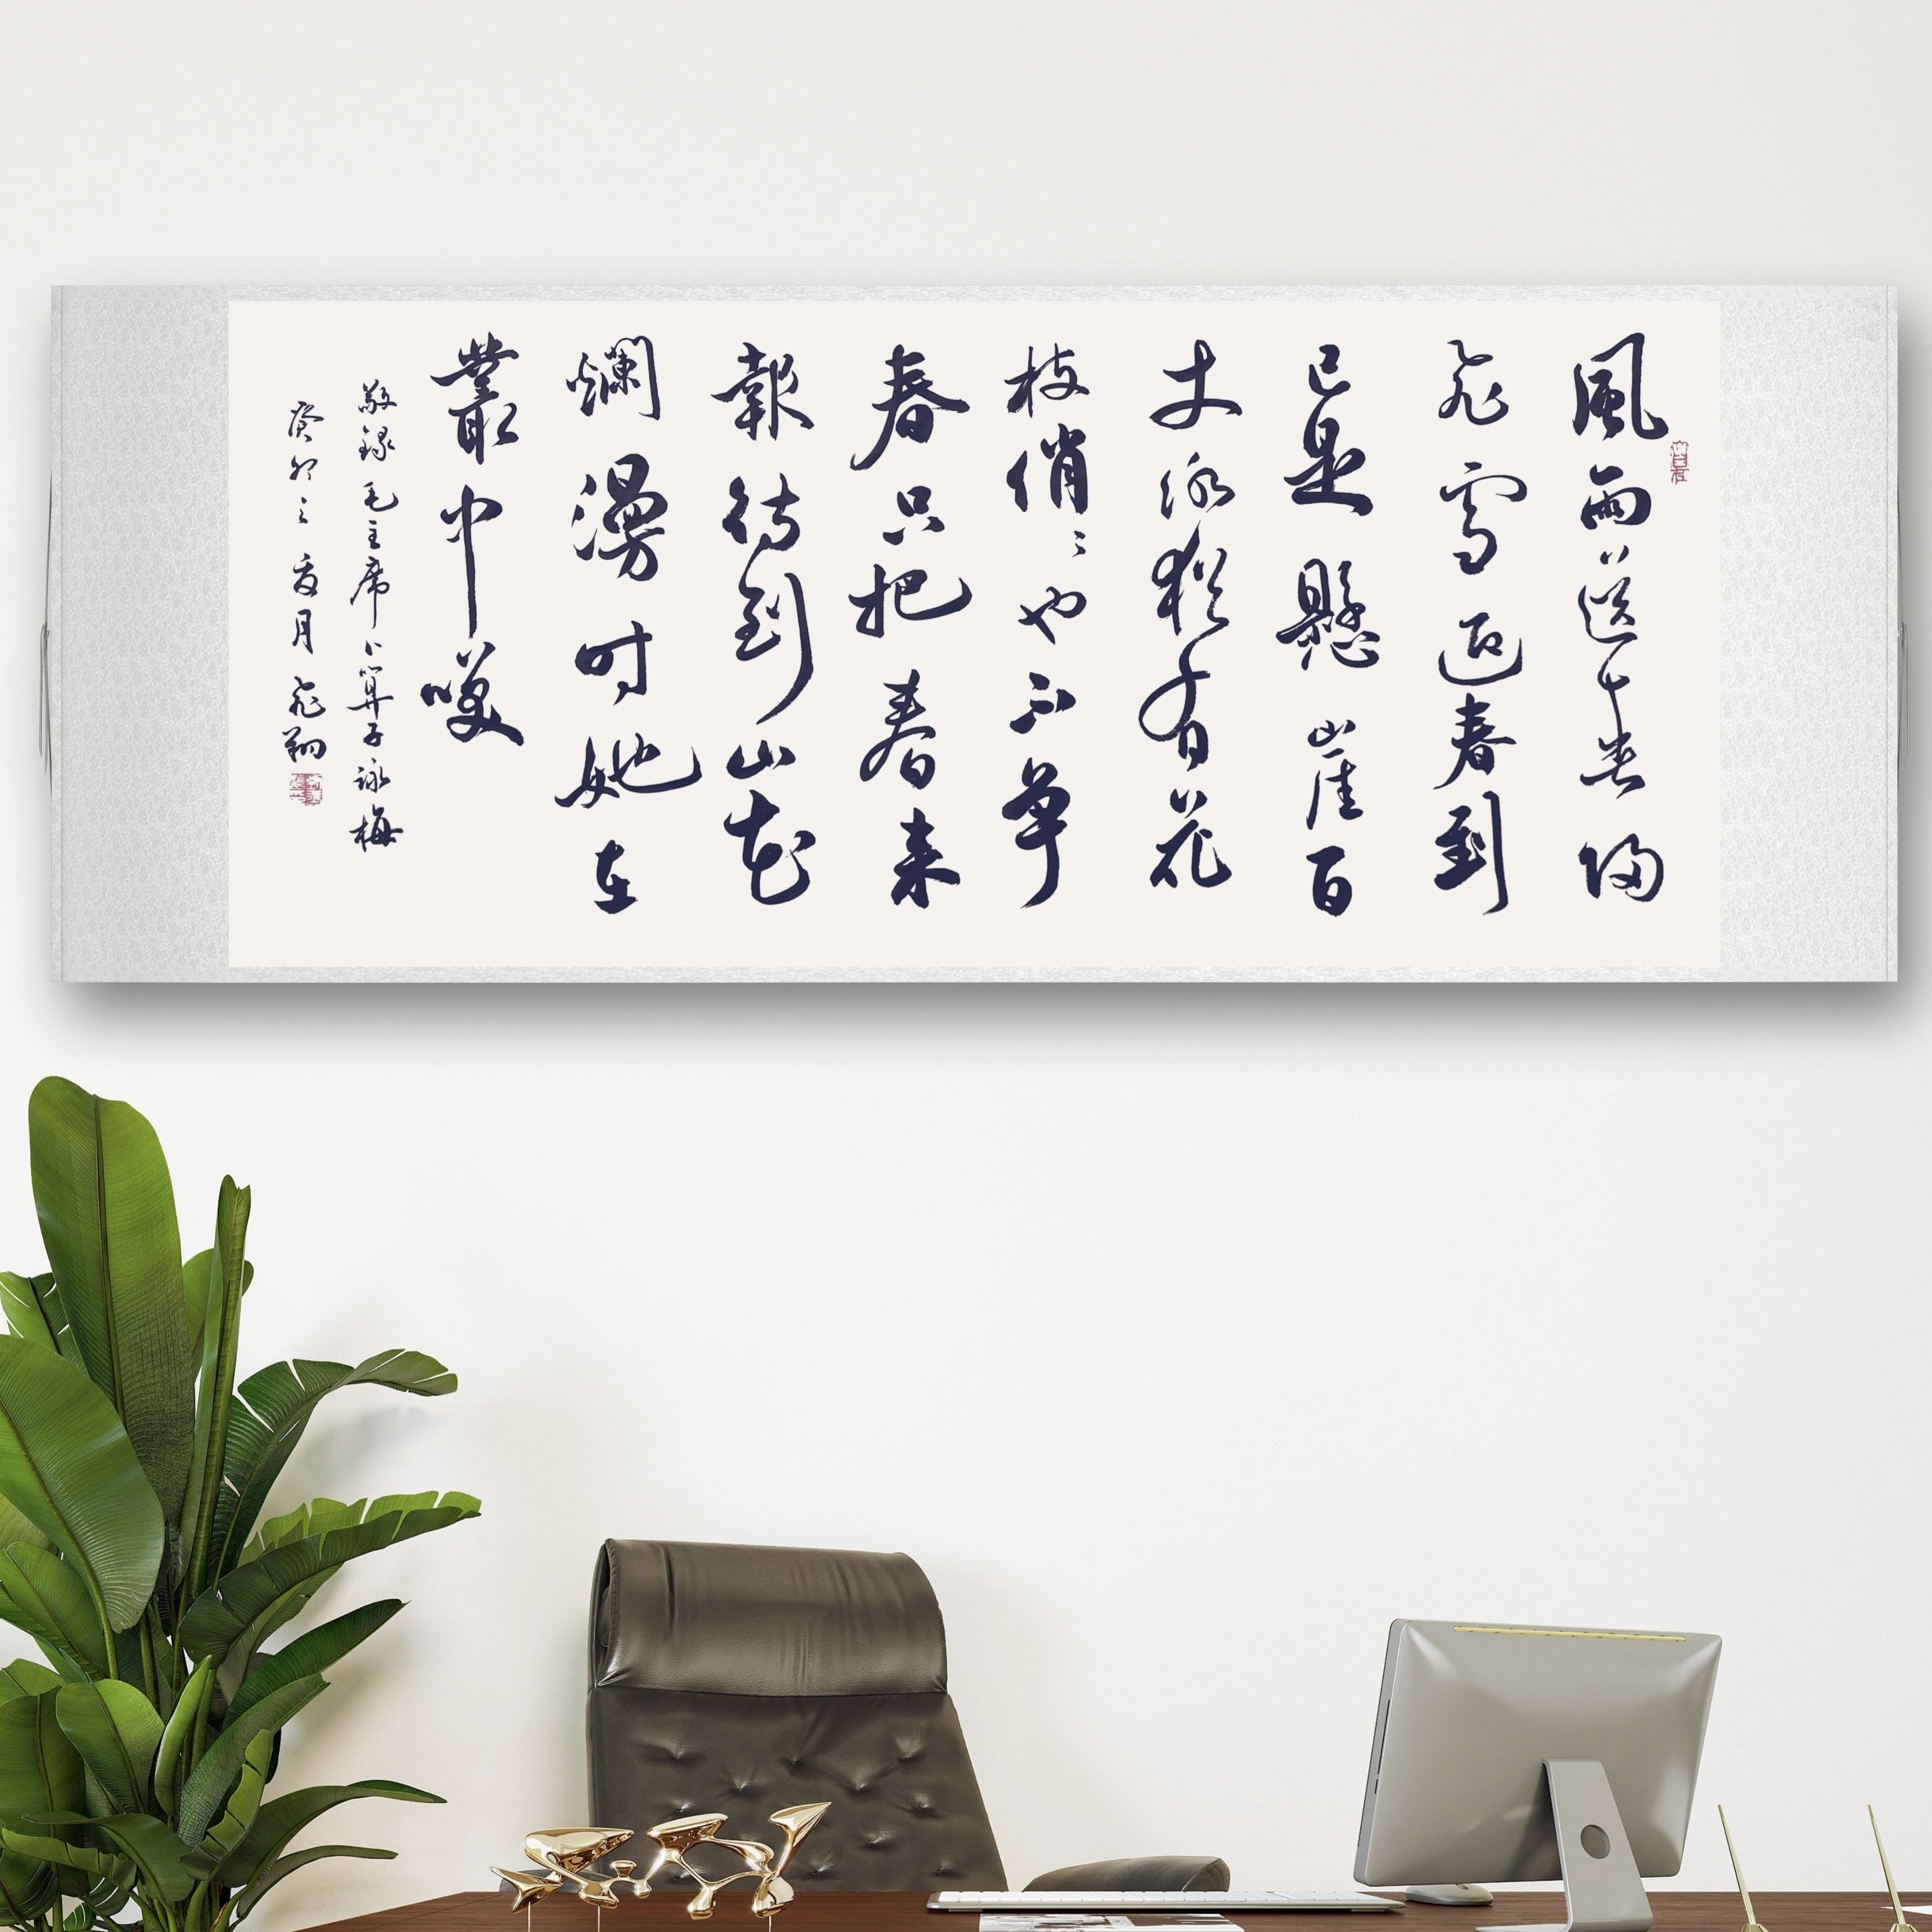 風雨送春歸
飛雪迎春到
已是懸崖百
丈冰猶有花
枝俏〻也不爭
春只把春来
報待到山花
爛漫时她在
叢中咲
敬錄毛主席卜算子詠梅
癸卯之夏月飛翔